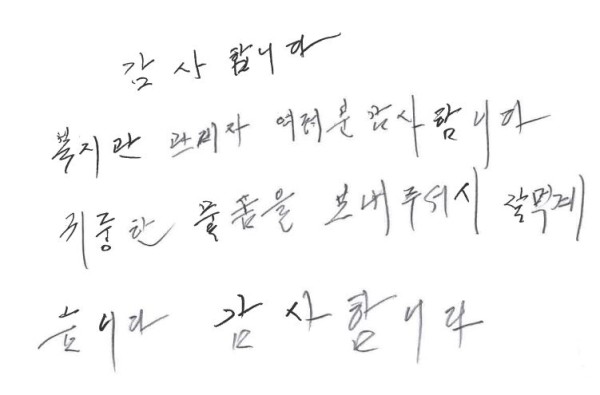 감사합니다
복지관 관계자 여러분 감사합니다
귀중한 물품을 보내주셔서 잘먹게
습니다 감사합니다